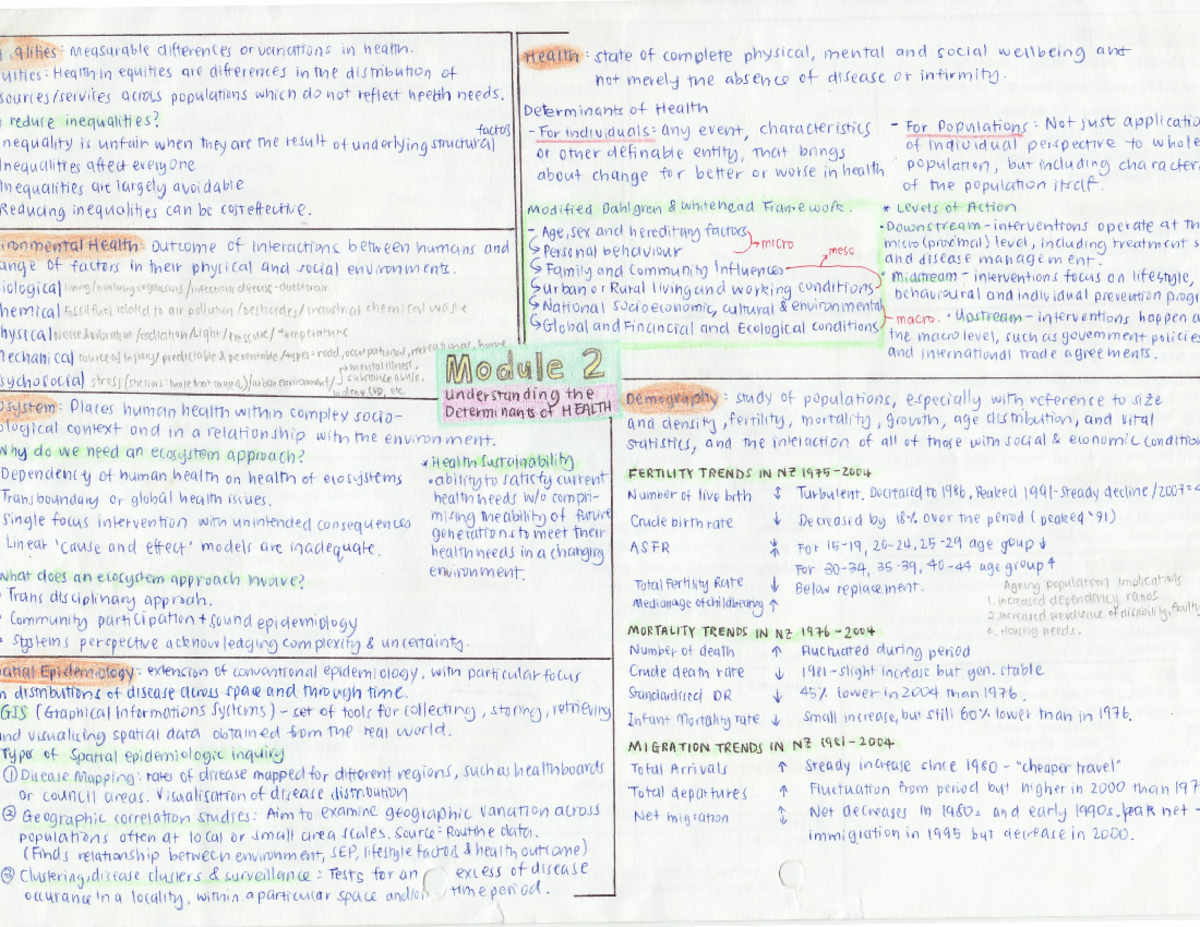 alities: Measurable differences or variations in health.
uities: Health in equities are differences in the distribution of
sources/services across populations which do not reflect health needs.
reduce inequalities?
nequality is unfair when they are the result of underlying structural factors
Inequalities affect everyone
Inequalities are largely avoidable
Reducing inequalities can be costeffective.
ironmental Health: Outcome of interactions between humans and
ange of factors in their physical and social environments.
iological living/nonliving organisms/infectious disease-
hemical fossil fuel related to air pollution/pesticides/industrial chemical waste
hysical noise & vibration/radiation/light/pressure/temperature
Mechanical source of injury/predictable & preventable/types-road, occupational, recreational, home
sychosocial stress (stressors: )/urban environment/ mental illness,
substance abuse,
violence, CVD, etc.
osystem: Places human health within complex socio-
ological context and in a relationship with the environment.
Why do we need an ecosystem approach?
Dependency of human health on health of ecosystems
Transboundary or global health issues.
Single focus intervention with unintended consequences
Linear 'cause and effect' models are inadequate.
What does an ecosystem approach involve?
Trans disciplinary approach.
• Community participation + sound epidemiology
• Systems perspective acknowledging complexity & uncertainty.
* Health Sustainability
• ability to satisfy current
health needs w/o compri-
mising the ability of future
generations to meet their
health needs in a changing
environment.
atial Epidemiology: extension of conventional epidemiology, with particular focus
n distributions of disease across space and through time.
GIS (Graphical Informations Systems) - set of tools for collecting, storing, retrieving
and visualising spatial data obtained from the real world.
Types of Spatial epidemiologic inquiry
① Disease Mapping: rates of disease mapped for different regions, such as healthboards
or council areas. Visualisation of disease distribution
② Geographic correlation studies: Aim to examine geographic variation across
populations often at local or small area scales. Source = Routine data.
(Finds relationship between environment, SEP, lifestyle factors & health outcome)
③ Clustering, disease clusters & surveillance: Tests for an excess of disease
occurance in a locality, within a particular space and/or time period.
Module 2
understanding the
Determinants of HEALTH
Health: state of complete physical, mental and social wellbeing and
not merely the absence of disease or infirmity.
Determinants of Health
- For individuals: any event, characteristics
or other definable entity, that brings
about change for better or worse in health
- For Populations: Not just applicatio
of individual perspective to whole
population, but including character
of the population itself.
Modified Dahlgren & Whitehead Framework.
- Age, sex and hereditary factors
Personal behaviour
micro
Family and Community Influences
meso
Urban or Rural living and working conditions
National Socioeconomic, cultural & environmental
Global and Financial and Ecological conditions
macro.
* Levels of Action
• Downstream - interventions operate at th
micro (proximal) level, including treatment s
and disease management.
• Midstream - interventions focus on lifestyle,
behavioural and individual prevention prog
• Upstream - interventions happen a
the macro level, such as government policies
and international trade agreements.
Demography: study of populations, especially with reference to size
and density, fertility, mortality, growth, age distribution, and vital
statistics, and the interaction of all of those with social & economic condition
FERTILITY TRENDS IN NZ 1975-2004
Number of live birth ↕ Turbulent. Decreased to 1986, Peaked 1991-Steady decline/2007=
Crude birth rate ↓ Decreased by 18% over the period (peaked '91)
ASFR For 15-19, 20-24, 25-29 age group ↓
For 30-34, 35-39, 40-44 age group ↑
Total Fertility Rate ↓ Below replacement.
Median age of childbearing ↑
Ageing population implications
1. increased dependency ratios
2. increased prevalence of disability,
3. Housing needs.
MORTALITY TRENDS IN NZ 1976-2004
Number of death ↑ Fluctuated during period
Crude death rate ↓ 1981-slight increase but gen. stable
Standardised DR ↓ 45% lower in 2004 than 1976.
Infant Mortality rate ↓ Small increase, but still 60% lower than in 1976.
MIGRATION TRENDS IN NZ 1981-2004
Total Arrivals ↑ Steady increase since 1980 - "cheaper travel"
Total departures ↑ Fluctuation from period but higher in 2000 than 197
Net migration ↕ Net decreases in 1980s and early 1990s. peak net -
immigration in 1995 but decrease in 2000.